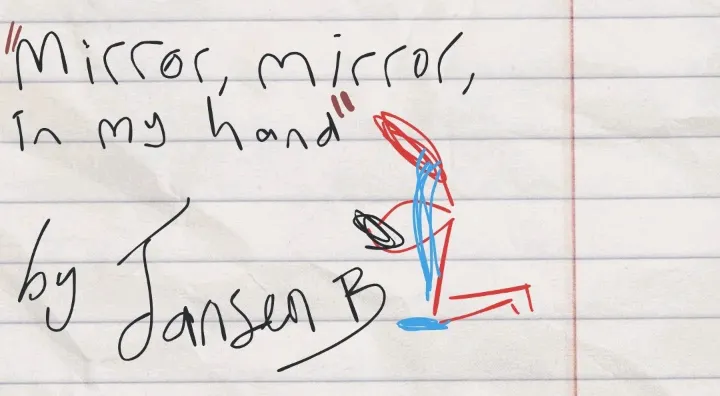 "Mirror, mirror,
In my hand"
by Jansen B